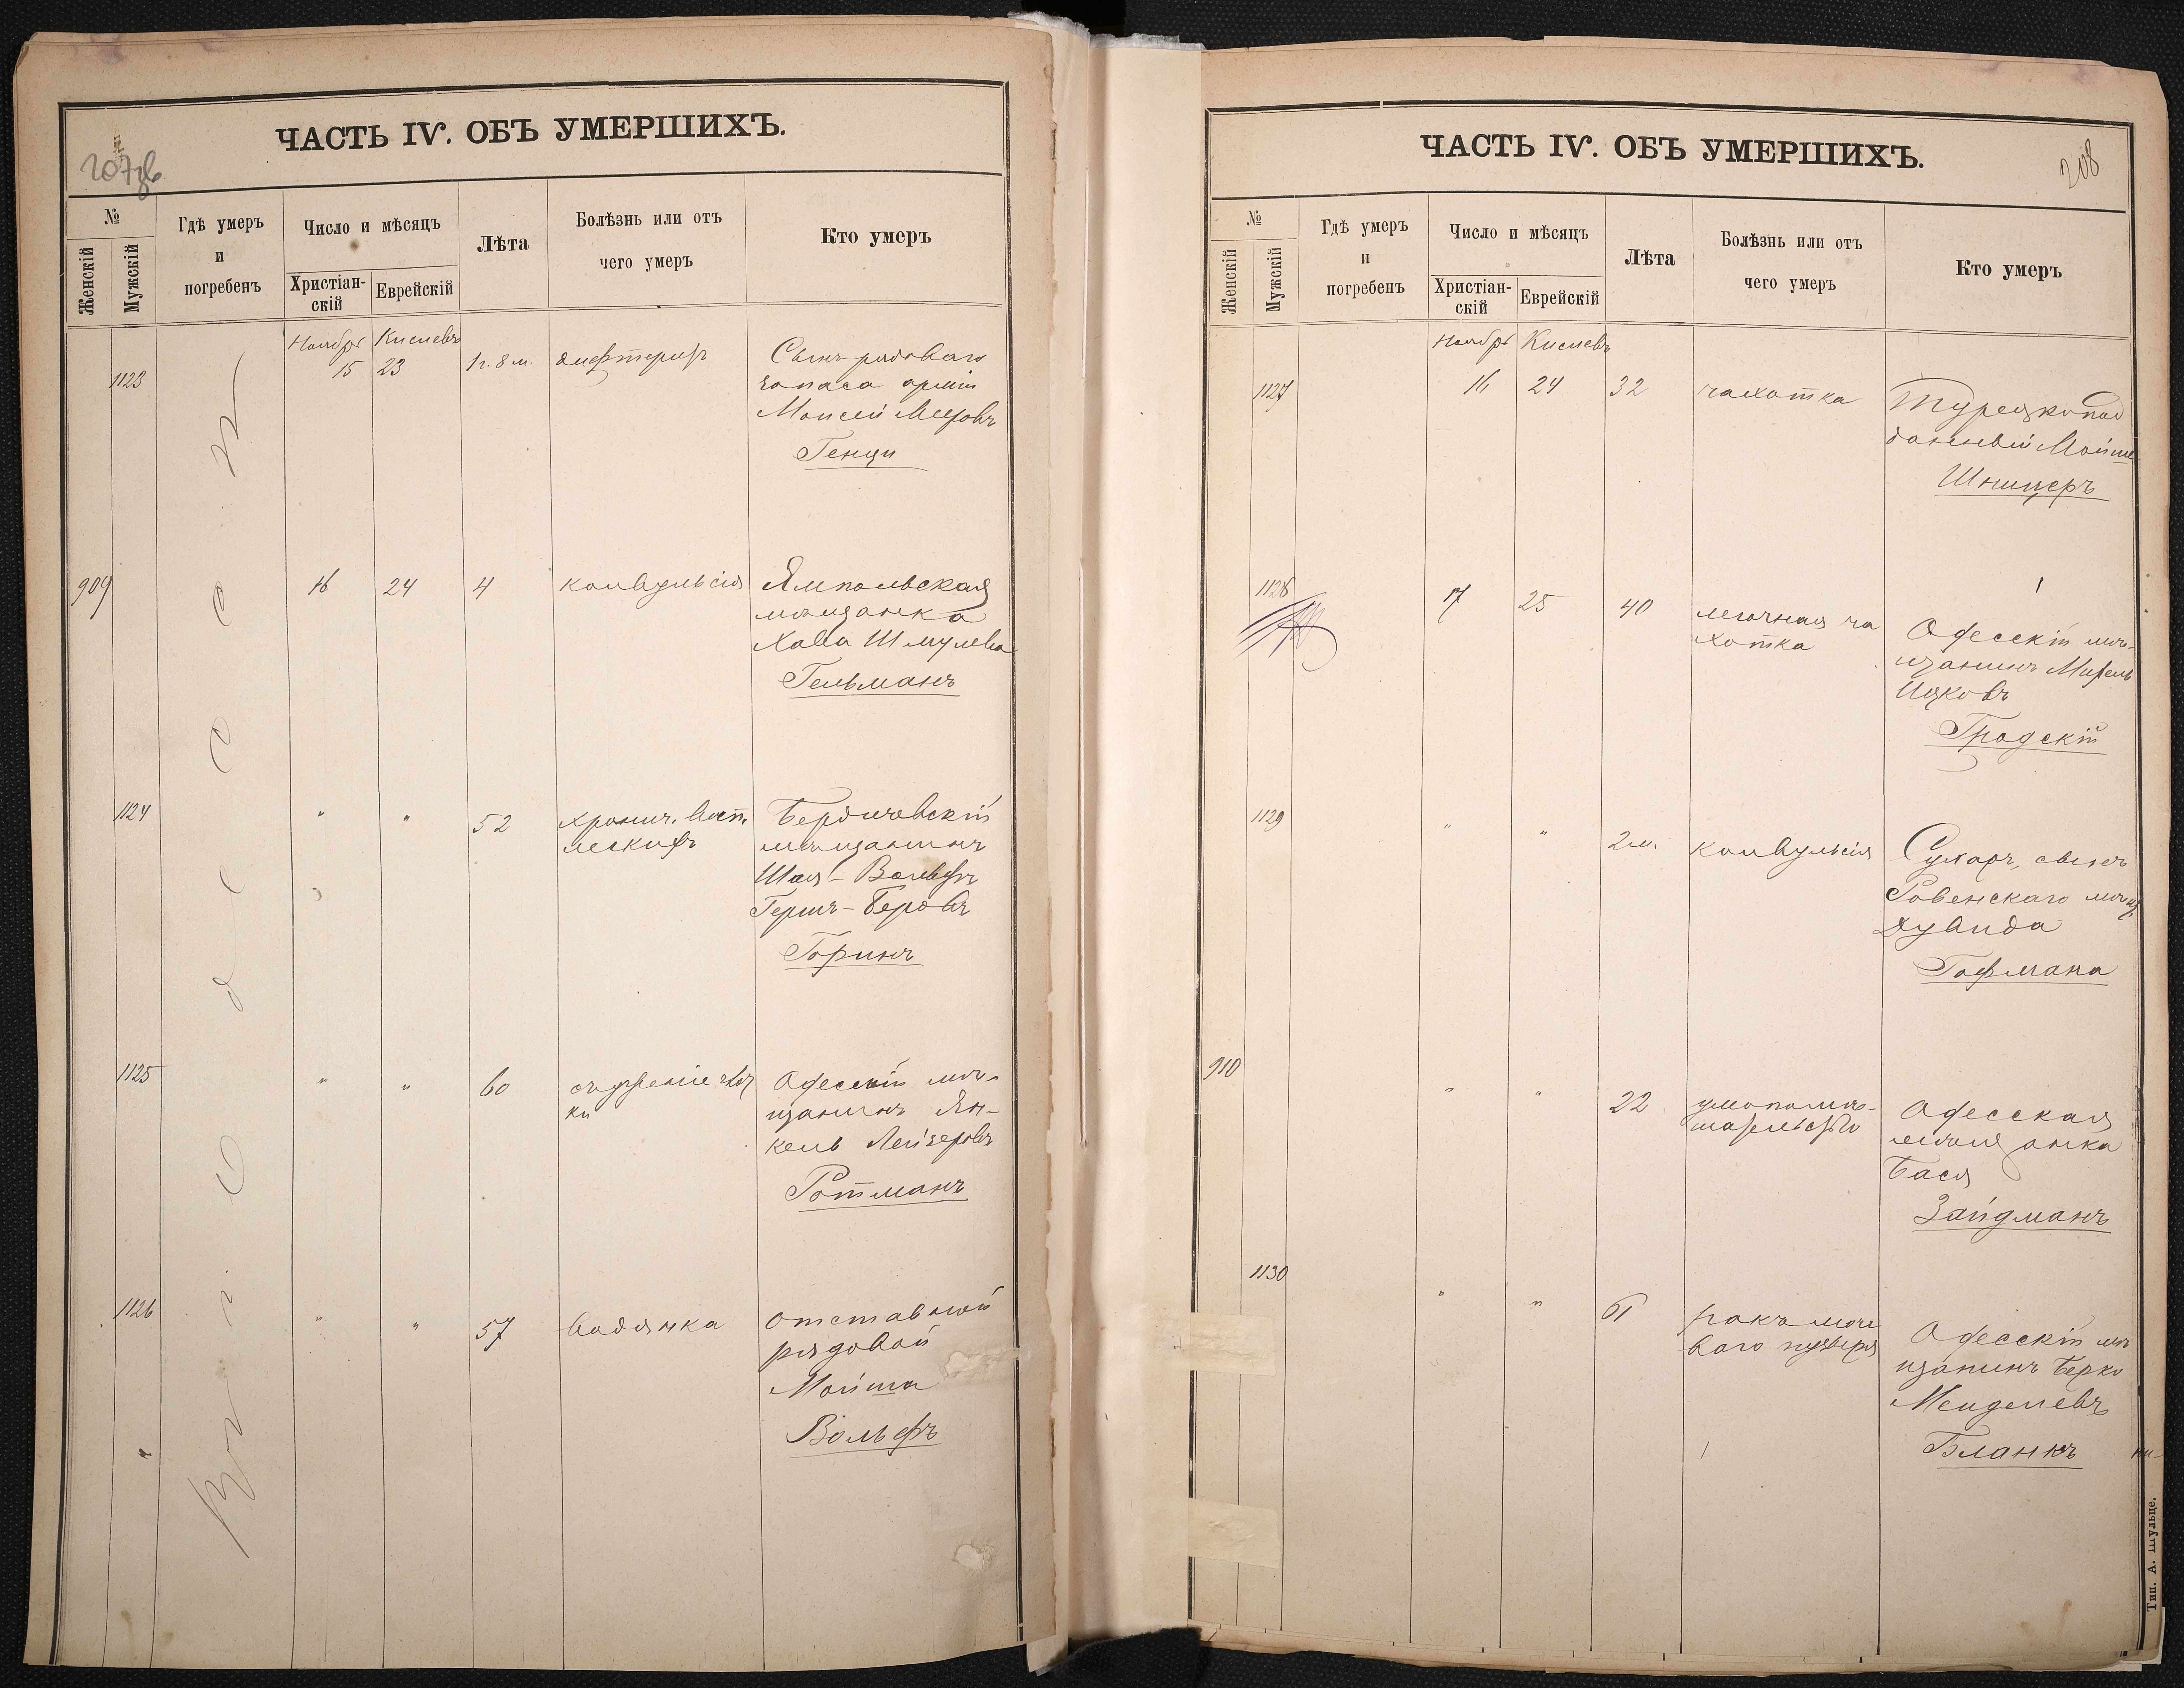 207зв
ЧАСТЬ IV. ОБЪ УМЕРШИХЪ.
№
Женскій
Мужскій
Гдѣ умеръ
и
погребенъ
Число и мѣсяцъ
Христіан-
скій
Еврейскій
Лѣта
Болѣзнь или отъ
чего умеръ
Кто умеръ
Въ г. Одессѣ
Ноябрь Кислевъ
1123 15 23 1 г. 8 м. дифтеритъ
Сынъ рядоваго
запаса арміи
Моисей Мееровъ
Генци
909 16 24 4 конвульсія
Ямпольская
мѣщанка
Хава Шмулева
Гельманъ
1124 " " 52 хронич. восп.
легкихъ
Бердичевскій
мѣщанинъ
Шая-Вольфъ
Гершъ-Беровъ
Горинъ
1125 " " 60
ки
Одесскій мѣ-
щанинъ Ян-
кель Лейзеровъ
Ротманъ
1126 " " 57 водянка
Отставной
рядовой
Мойша
Вольфъ
ЧАСТЬ IV. ОБЪ УМЕРШИХЪ.
208
№
Женскій
Мужскій
Гдѣ умеръ
и
погребенъ
Число и мѣсяцъ
Христіан-
скій
Еврейскій
Лѣта
Болѣзнь или отъ
чего умеръ
Кто умеръ
Ноябрь Кислевъ
1127 16 24 32 чахотка
Турецкопод
данный Мойше
Шницеръ
1128 17 25 40 легочная ча
хотка
Одесскій мѣ-
щанинъ
Ицковъ
Градскій
1129 " " 2 м. конвульсія
Сухаръ, сынъ
Ровенскаго мѣщ.
Дувида
Гофмана
910 " " 22 умопомѣ-
шательство
Одесская
мѣщанка
Бася
Зайдманъ
1130 " " 61 ракъ моче
ваго пузыря
Одесскій мѣ
щанинъ Берко
Менделевъ
Бланкъ
Тип. А. Шульце.